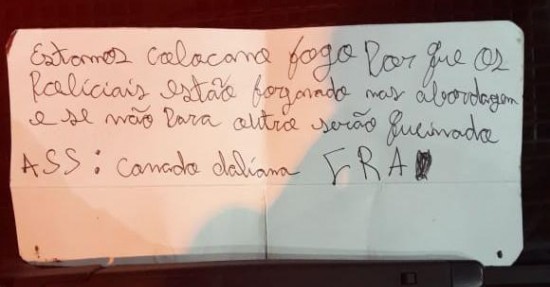 Estamos colacano fogo Por que os
Paliciais estão forganado nas abordagem
e se não Para outro serão queimado
ASS: comado daliana ERA